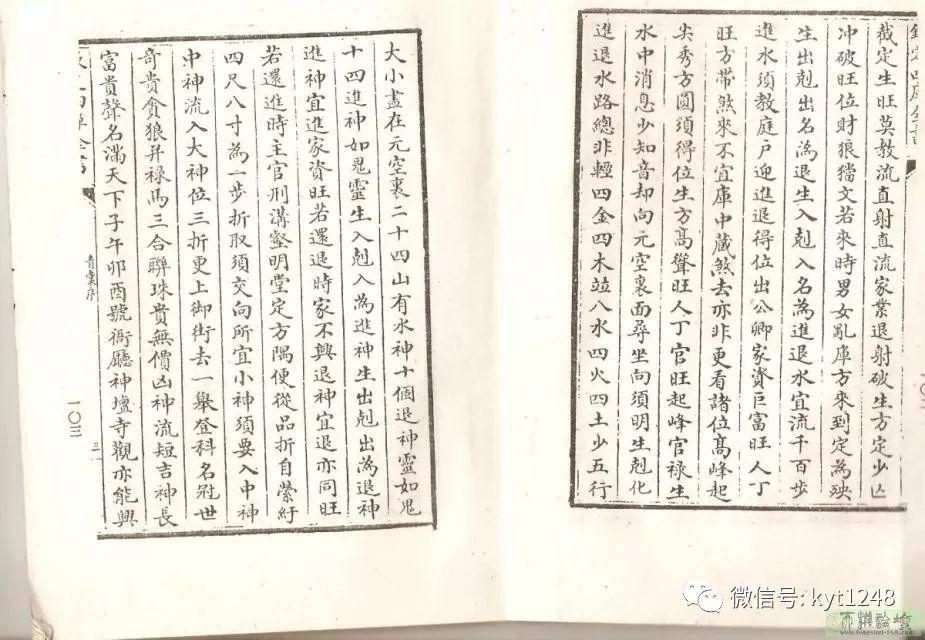 裁定生旺莫教流直射直流家業退射破生方定少亾
冲破旺位財狼猖文若來時男女亂庫方來到定為殃
生出剋出名為退生入剋入名為進退水宜流千百步
進水須教庭户迎進退得位出公卿家資巨富旺人丁
旺方帶煞來不宜庫中藏煞去亦非更看諸位髙峰起
尖秀方圓須得位生方髙聳旺人丁官旺起峰官禄生
水中消息少知音却向元空裏面尋坐向須明生剋化
進退水路總非輕四金四木竝八水四火四土少五行
大小盡在元空裏二十四山有水神十個退神靈如鬼
十四進神如鬼靈生入剋入為進神生出剋出為退神
進神宜進家資旺若還退時家不興退神宜退亦同旺
若還進時主官刑溝壑明堂定方隅便從品折自縈紆
四尺八寸為一步折取須交向所宜小神須要入中神
中神流入大神位三折更上御街去一舉登科名冠世
奇貴貪狼并禄馬三合聯珠貴無價凶神流短吉神長
富貴聲名滿天下子午卯酉號衙廳神壇寺觀亦能興
青囊序
一〇三
微信号: kyt1248